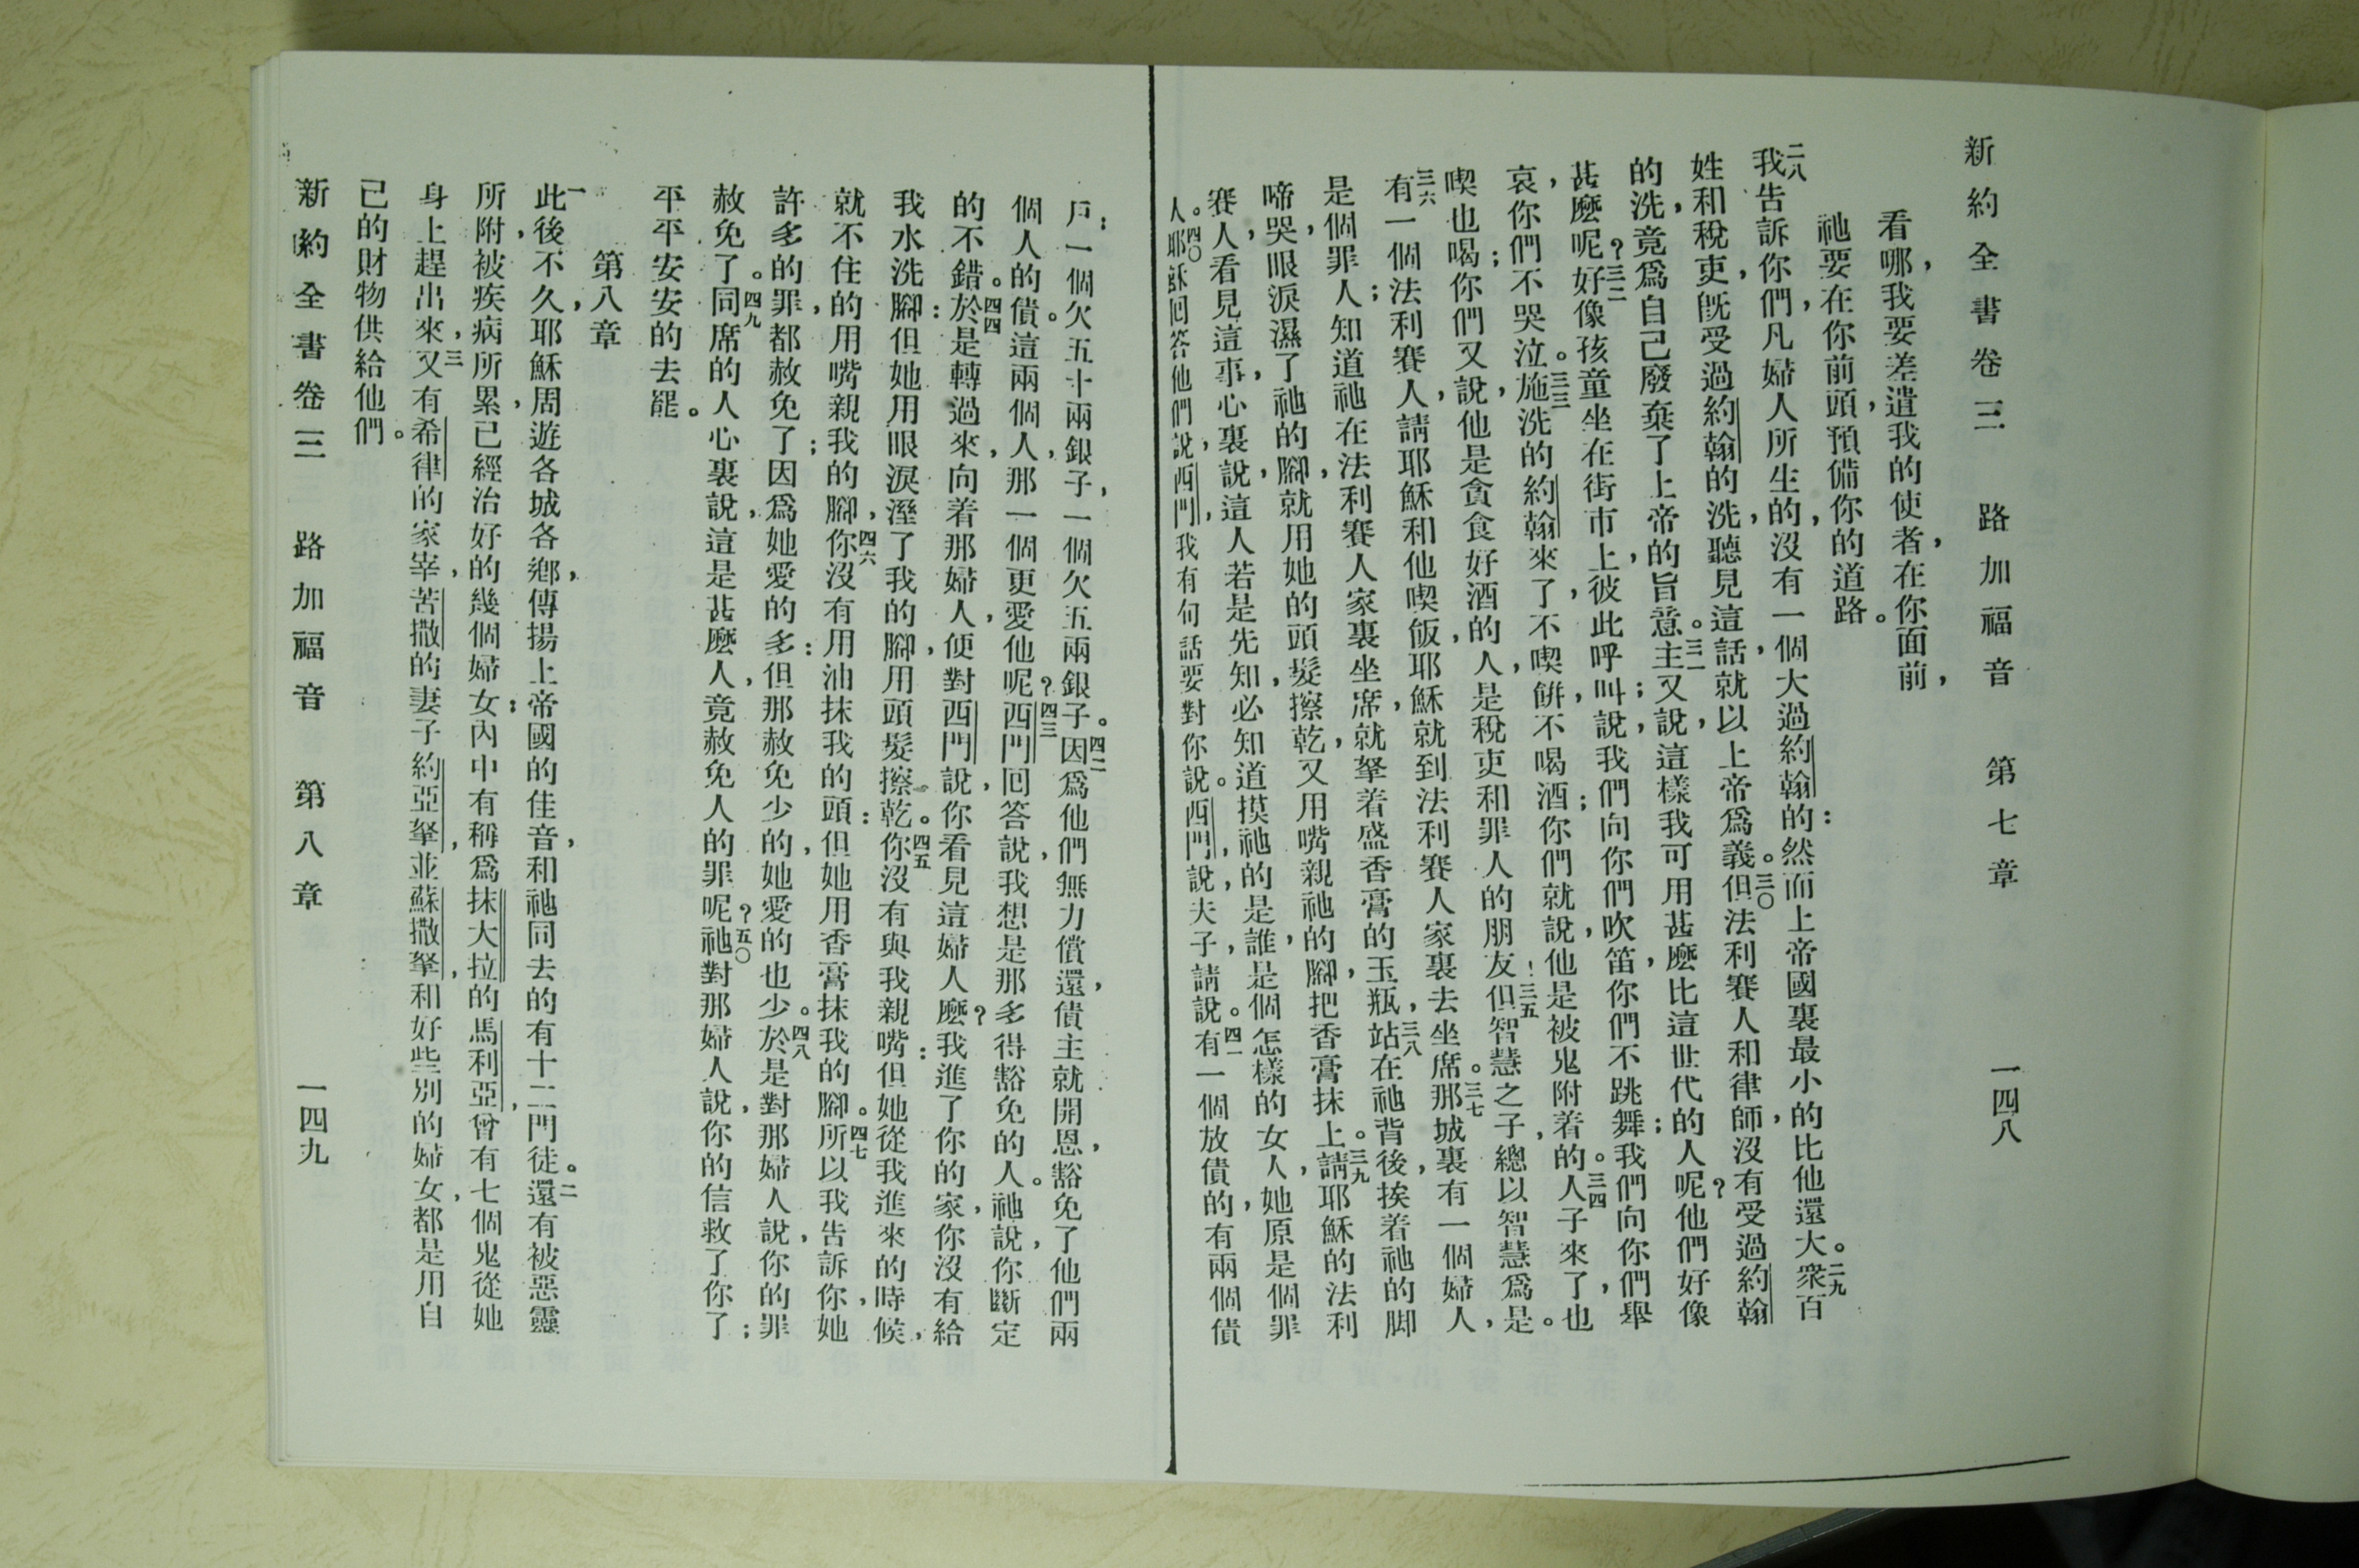 新約全書卷三 路加福音 第七章 一四八
看哪,我要差遣我的使者,在你面前,
祂要在你前頭,預備你的道路。
二八我告訴你們,凡婦人所生的,沒有一個大過約翰的:然而上帝國裏最小的比他還大。二九衆百
姓和稅吏,旣受過約翰的洗,聽見這話,就以上帝爲義。三〇但法利賽人和律師,沒有受過約翰
的洗,竟爲自己廢棄了上帝的旨意。三一主又說,這樣我可用甚麼比這世代的人呢?他們好像
甚麼呢?三二好像孩童坐在街市上,彼此呼叫;說,我們向你們吹笛,你們不跳舞;我們向你們舉
哀,你們不哭泣。三三施洗的約翰來了,不喫餅,不喝酒;你們就說,他是被鬼附着的。三四人子來了,也
喫也喝;你們又說,他是貪食好酒的人,是稅吏和罪人的朋友!三五但智慧之子,總以智慧爲是。
三六有一個法利賽人,請耶穌和他喫飯,耶穌就到法利賽人家裏去坐席。三七那城裏有一個婦人,
是個罪人;知道祂在法利賽人家裏坐席,就拏着盛香膏的玉瓶,三八站在祂背後,挨着祂的脚
啼哭,眼淚濕了祂的腳,就用她的頭髮擦乾,又用嘴親祂的腳,把香膏抹上。三九請耶穌的法利
賽人,看見這事,心裏說,這人若是先知,必知道摸祂的是誰,是個怎樣的女人,她原是個罪
人。四〇耶穌回答他們說,西門,我有句話要對你說。西門說,夫子,請說。四一有一個放債的,有兩個債
戶;一個欠五十兩銀子,一個欠五兩銀子。四二因爲他們無力償還,債主就開恩,豁免了他們兩
個人的債。這兩個人,那一個更愛他呢?四三西門回答說,我想是那多得豁免的人。祂說,你斷定
的不錯。四四於是轉過來,向着那婦人,便對西門說,你看見這婦人麼?我進了你的家,你沒有給
我水洗腳:但她用眼淚溼了我的腳,用頭髮擦乾。四五你沒有與我親嘴:但她從我進來的時候,
就不住的用嘴親我的腳,四六你沒有用油抹我的頭:但她用香膏抹我的腳。四七所以我告訴你,她
許多的罪,都赦免了;因爲她愛的多:但那赦免少的,她愛的也少。四八於是對那婦人說,你的罪
赦免了。四九同席的人心裏說,這是甚麼人,竟赦免人的罪呢?五〇祂對那婦人說,你的信救了你了;
平平安安的去罷。
第八章
一此後不久,耶穌周遊各城各鄉,傳揚上帝國的佳音,和祂同去的有十二門徒。二還有被惡靈
所附,被疾病所累,已經治好的幾個婦女:內中有稱爲抹大拉的馬利亞,曾有七個鬼從她
身上趕出來,三又有希律的家宰,苦撒的妻子約亞拏,並蘇撒拏,和好些別的婦女,都是用自
己的財物供給他們。
新約全書卷三 路加福音 第八章 一四九